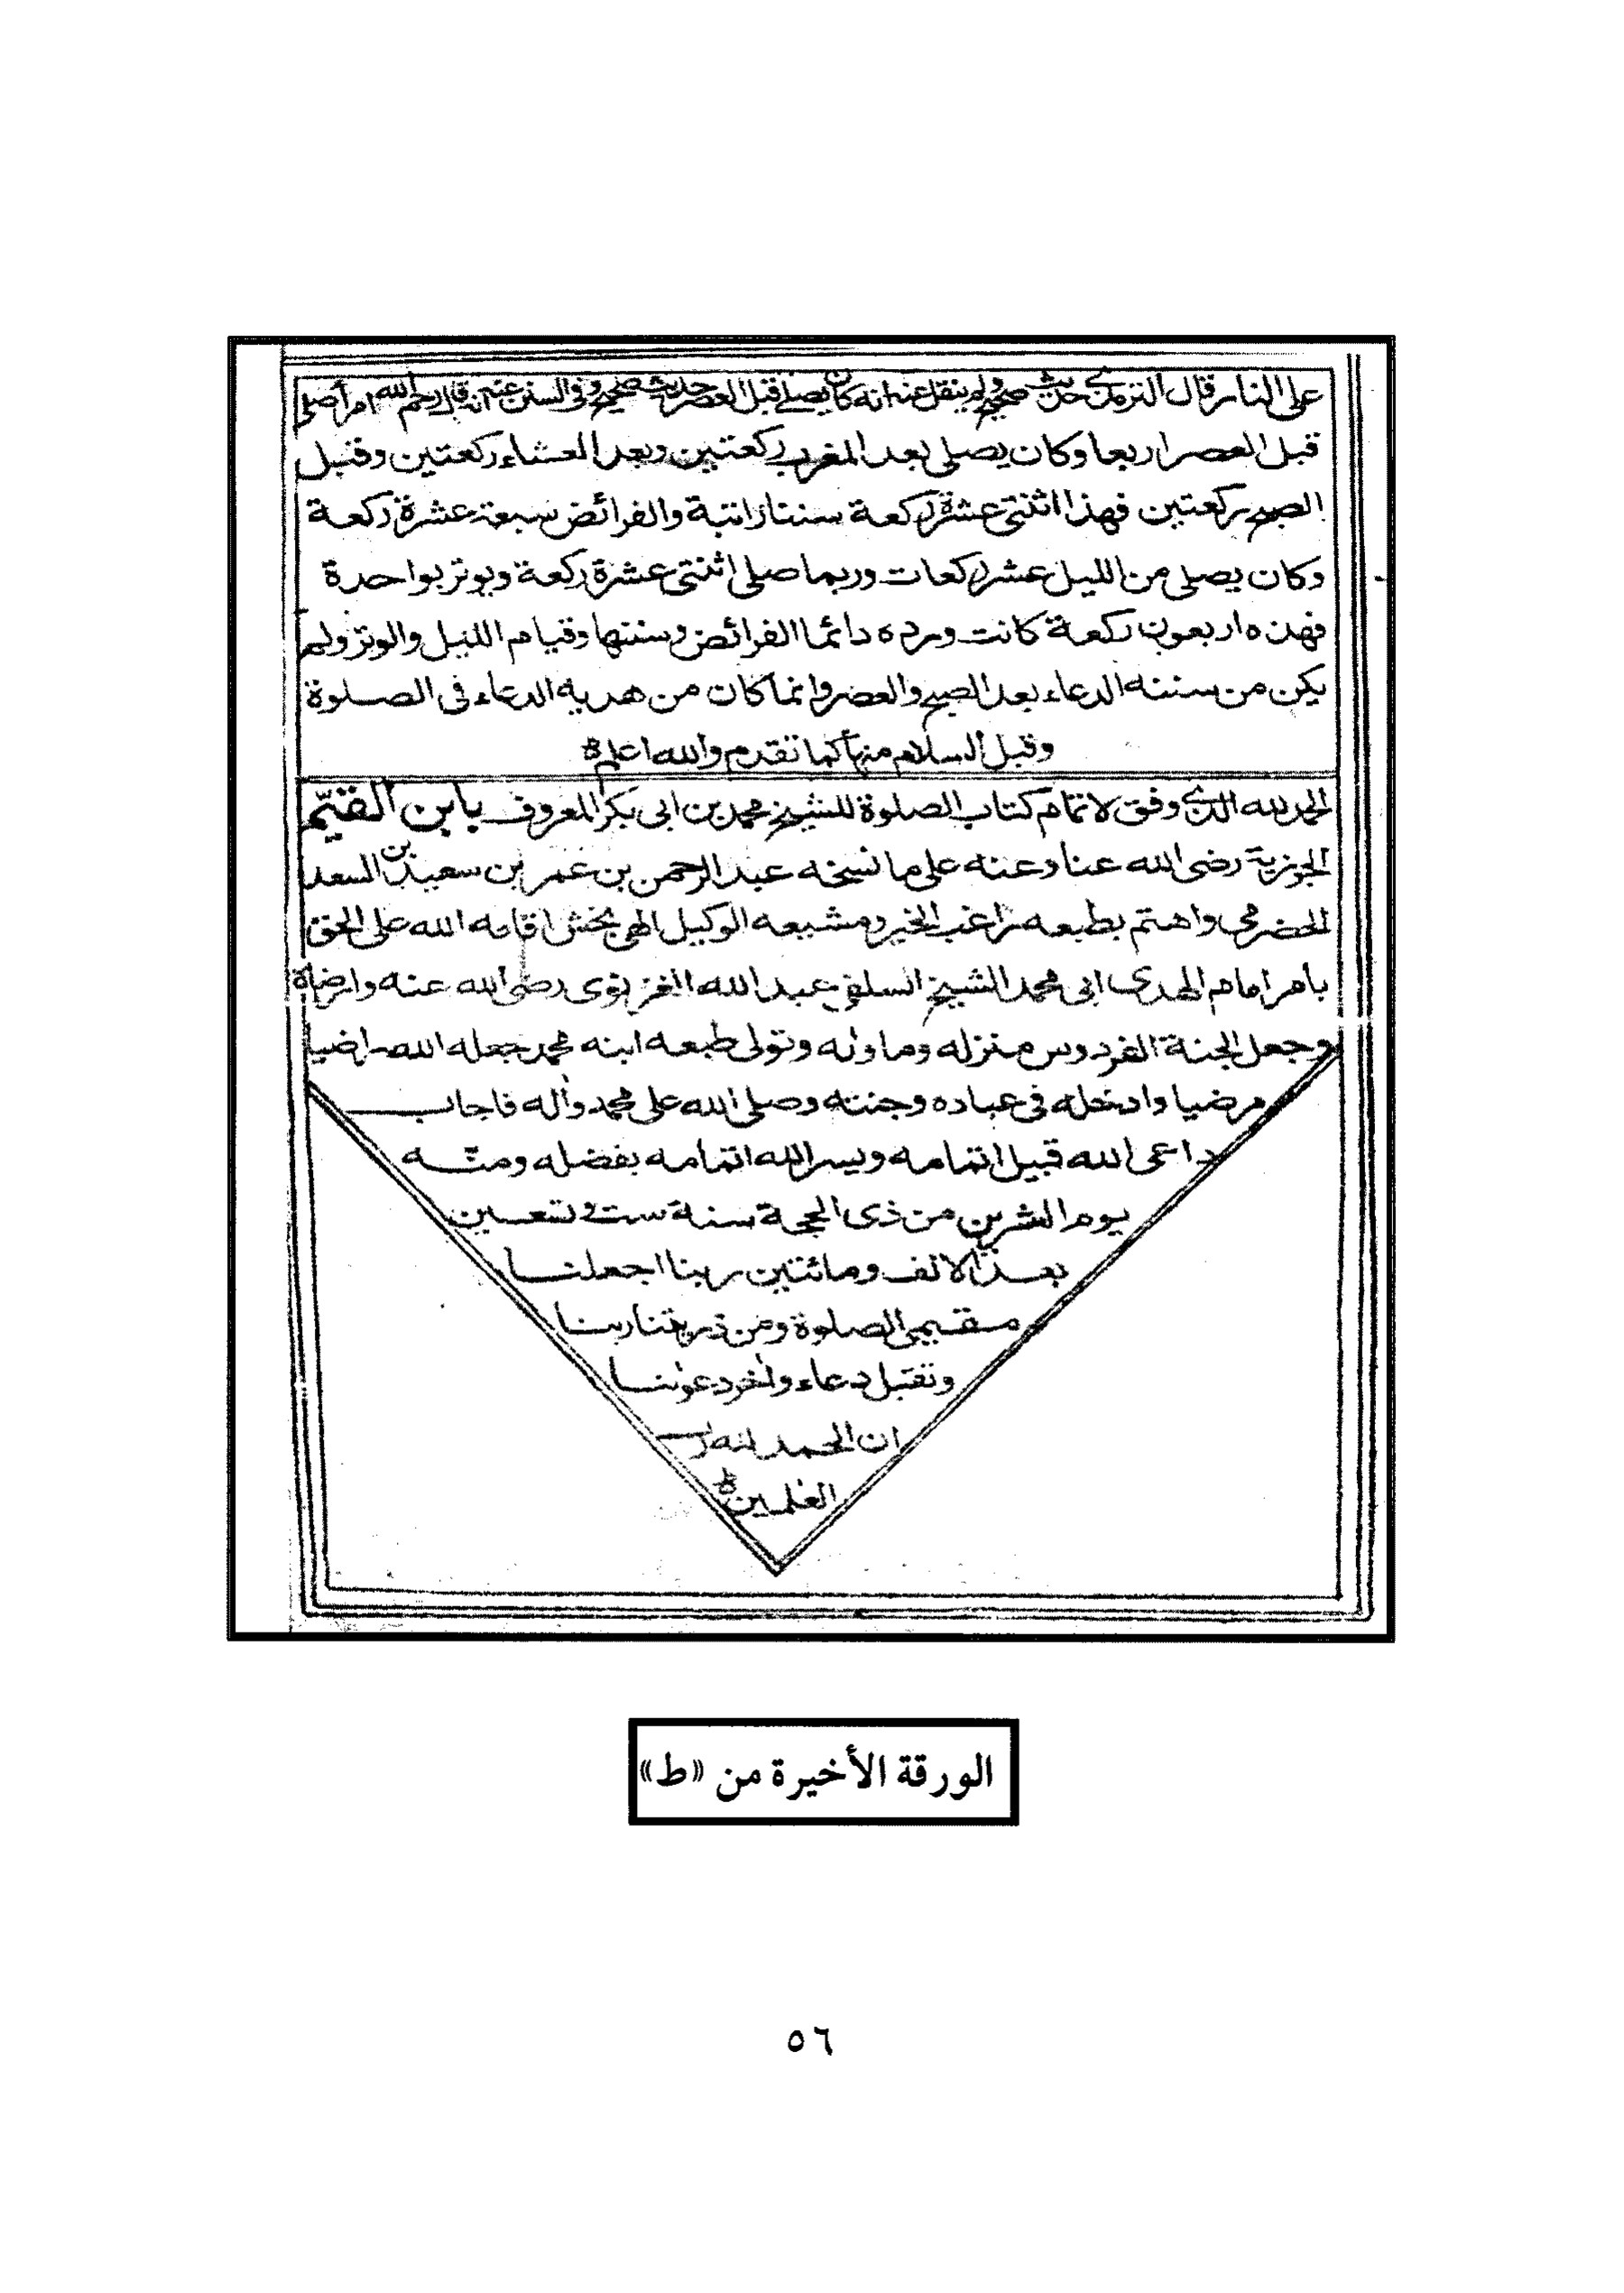 على النار قال الترمذي حديث صحيح ولم ينقل عنه انه كان يصلي قبل العصر حديث صحيح وفي السنن عنه انه قال رحم الله امرأ صلى
قبل العصر اربعا وكان يصلى بعد المغرب ركعتين وبعد العشاء ركعتين وقبل
الصبح ركعتين فهذا اثنتى عشرة ركعة سننا راتبة والفرائض سبعة عشرة ركعة
وكان يصلى من الليل عشر ركعات وربما صلى اثنتى عشرة ركعة ويوتر بواحدة
فهذه اربعون ركعة كانت ورده دائما الفرائض وسننها وقيام الليل والوتر ولم
يكن من سننه الدعاء بعد الصبح والعصر وانما كان من هديه الدعاء فى الصلوة
وقبل السلام منها كما تقدم والله اعلم
الحمد لله الذي وفق لاتمام كتاب الصلوة للشيخ محمد بن ابى بكر المعروف بابن القيّم
الجوزية رضى الله عنا وعنه على ما نسخه عبد الرحمن بن عمر بن سعيد بن السعد
الحضرمى واهتم بطبعه راغب الخير ومشيعه الوكيل الهى بخش اقامه الله على الحق
بامر امام الهدى ابى محمد الشيخ السلفى عبد الله الغزنوى رضى الله عنه وارضاه
وجعل الجنة الفردوس منزله وماوٰه وتولى طبعه ابنه محمد جعله الله راضيا
مرضيا وادخله فى عباده وجنته وصلى الله على محمد واٰله فاجاب
داعى الله قبيل اتمامه ويسر الله اتمامه بفضله ومنّه
يوم الشرين من ذى الحجة سنة ست وتسعين
بعد الالف ومائتين ربنا اجعلنا
مقيمى الصلوة ومن ذريتنا ربنا
وتقبل دعاء واٰخر دعوٰنا
ان الحمد لله رب
العٰلمين
الورقة الأخيرة من «ط»
٥٦